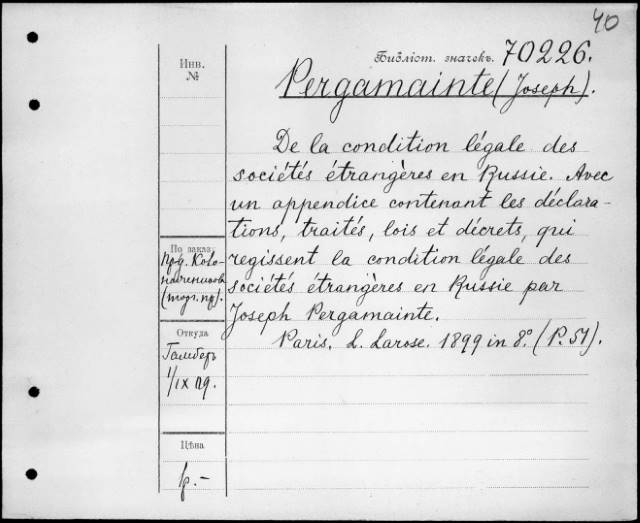 40
Библіот. значекъ. 70226.
Инв.
№
Pergamainte (Joseph).
De la condition légale des
sociétés étrangères en Russie. Avec
un appendice contenant les déclara-
tions, traités, lois et décrets, qui
regissent la condition légale des
sociétés étrangères en Russie par
Joseph Pergamainte.
Paris. L. Larose. 1899 in 8.° (P. 51).
По заказу:
Откуда
1/IX
Цѣна